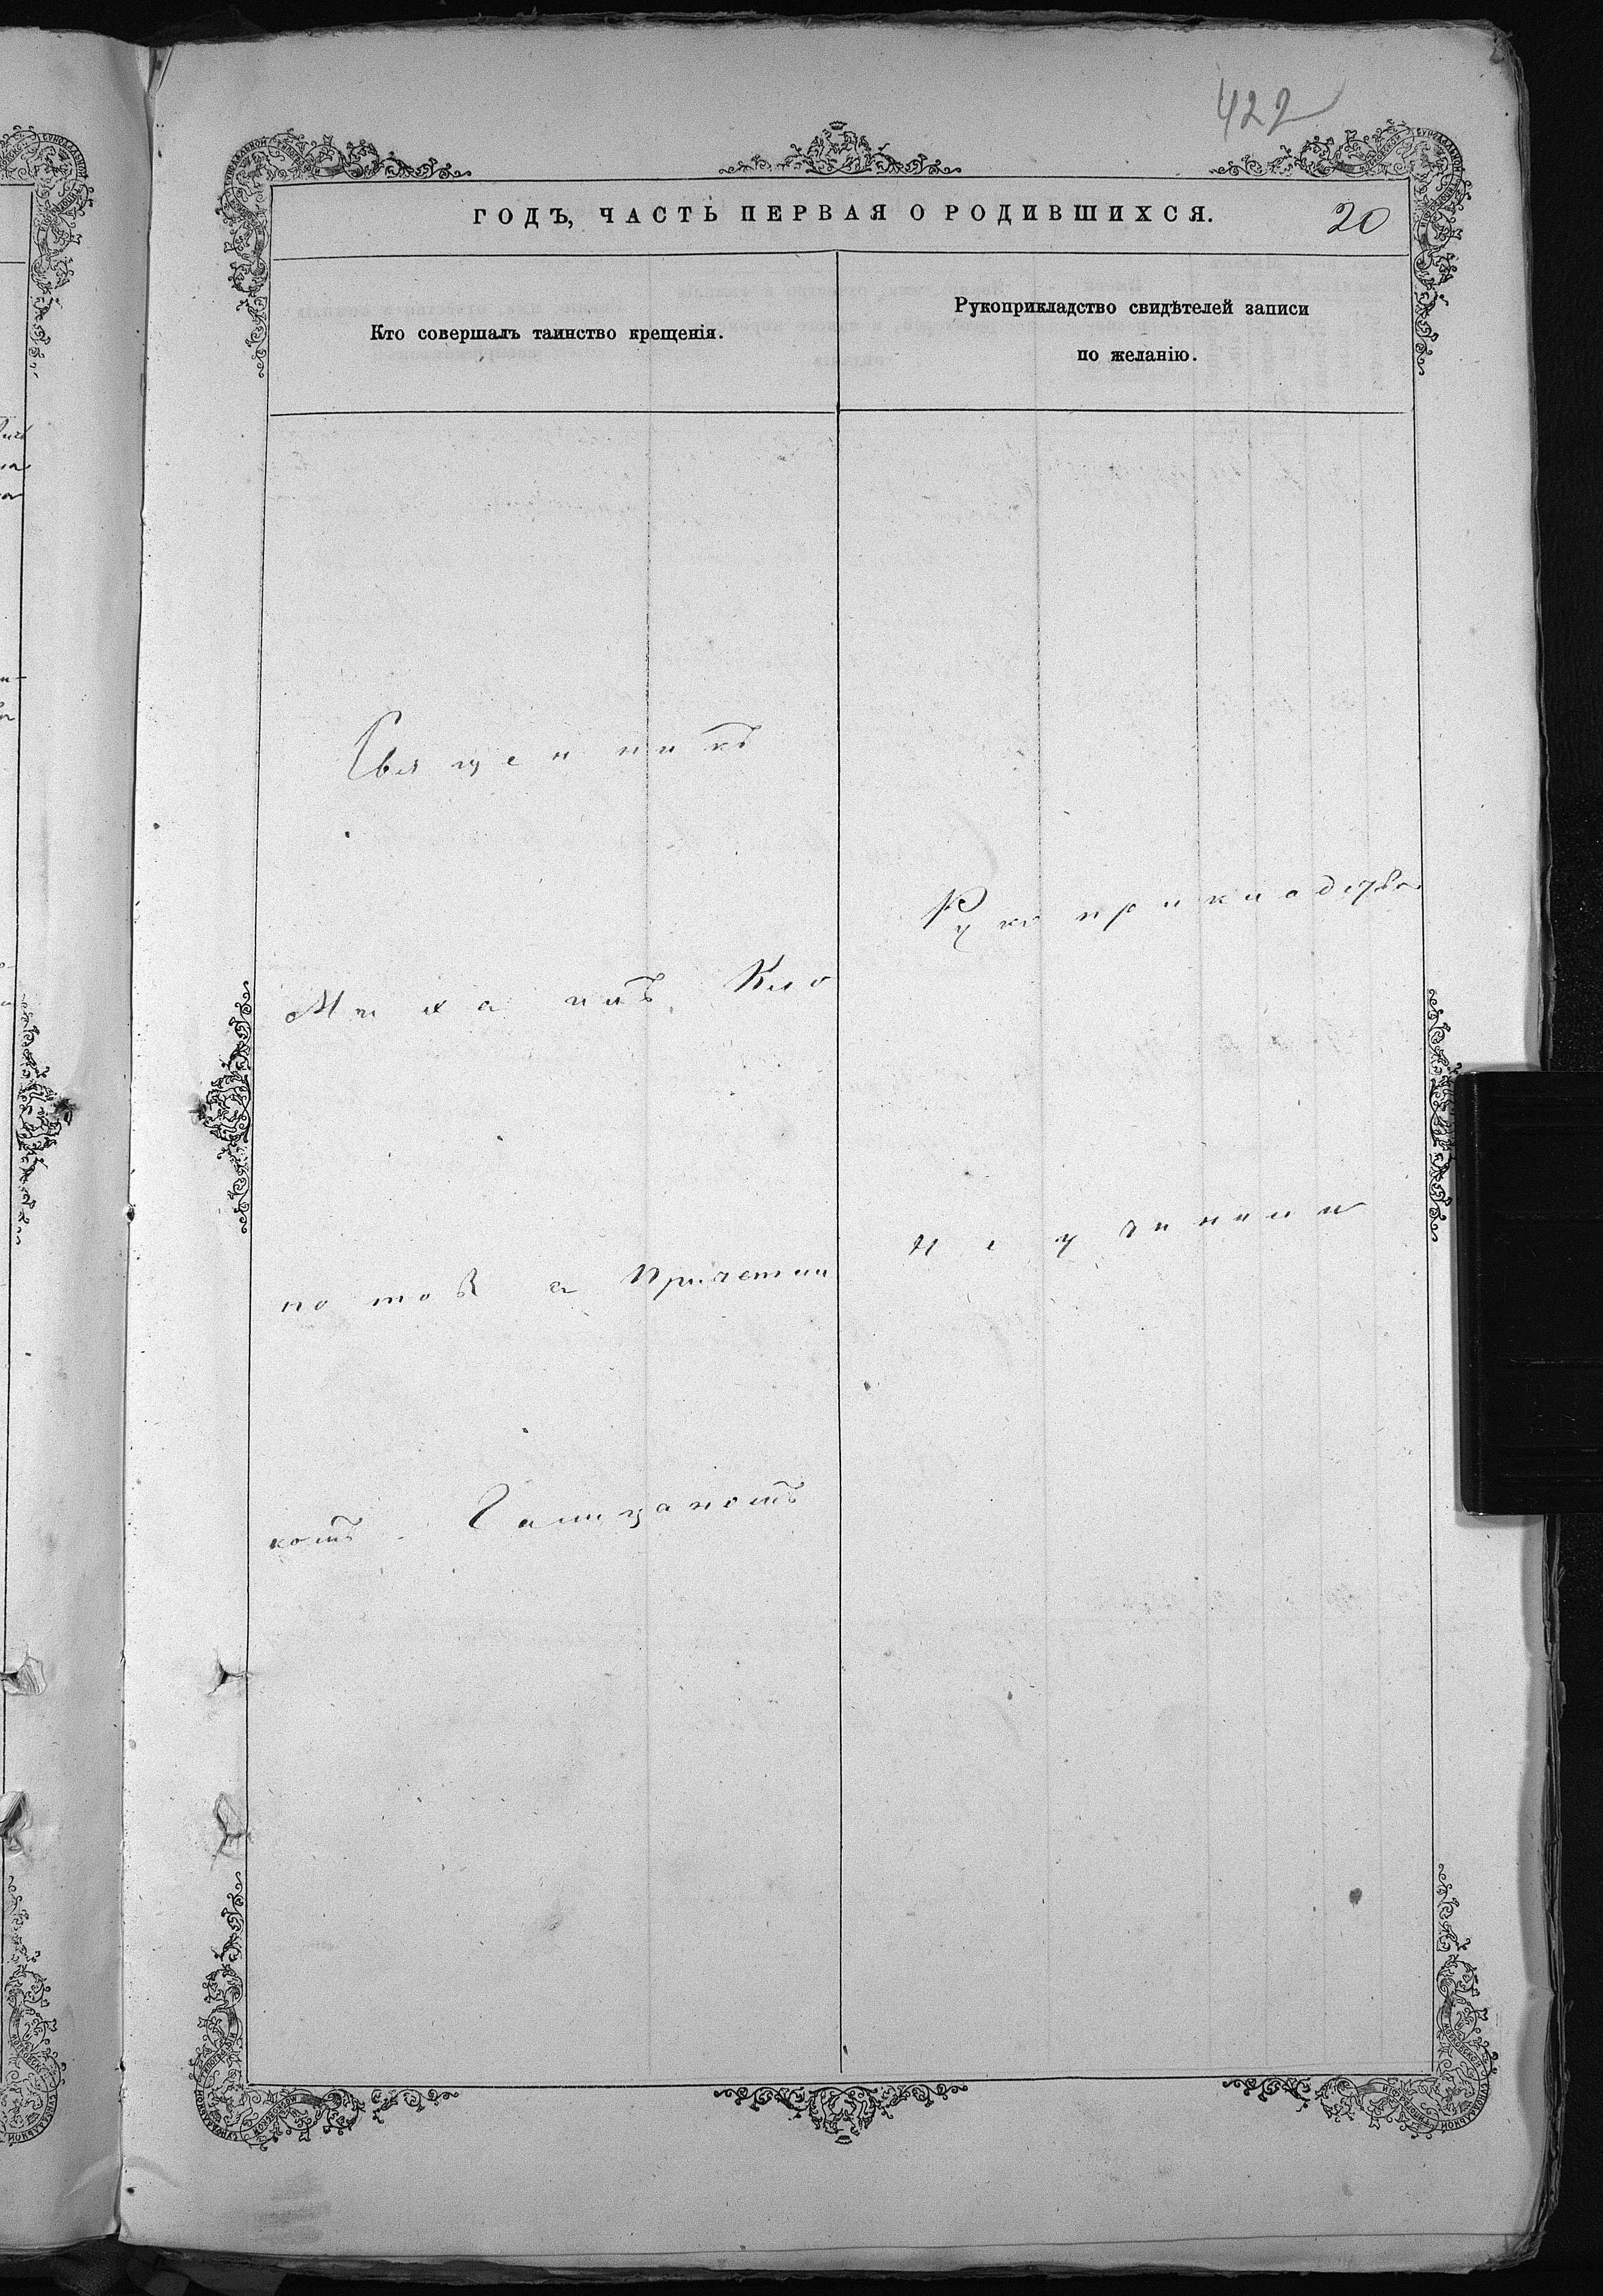 422
ГОДЪ, ЧАСТЬ ПЕРВАЯ О РОДИВШИХСЯ.
20
Кто совершалъ таинство крещенія.
Рукоприкладство свидѣтелей записи
по желанію.
Священникъ
Михаилъ Кло
потов съ Причетни
комъ
Рукоприкладства
не учинили